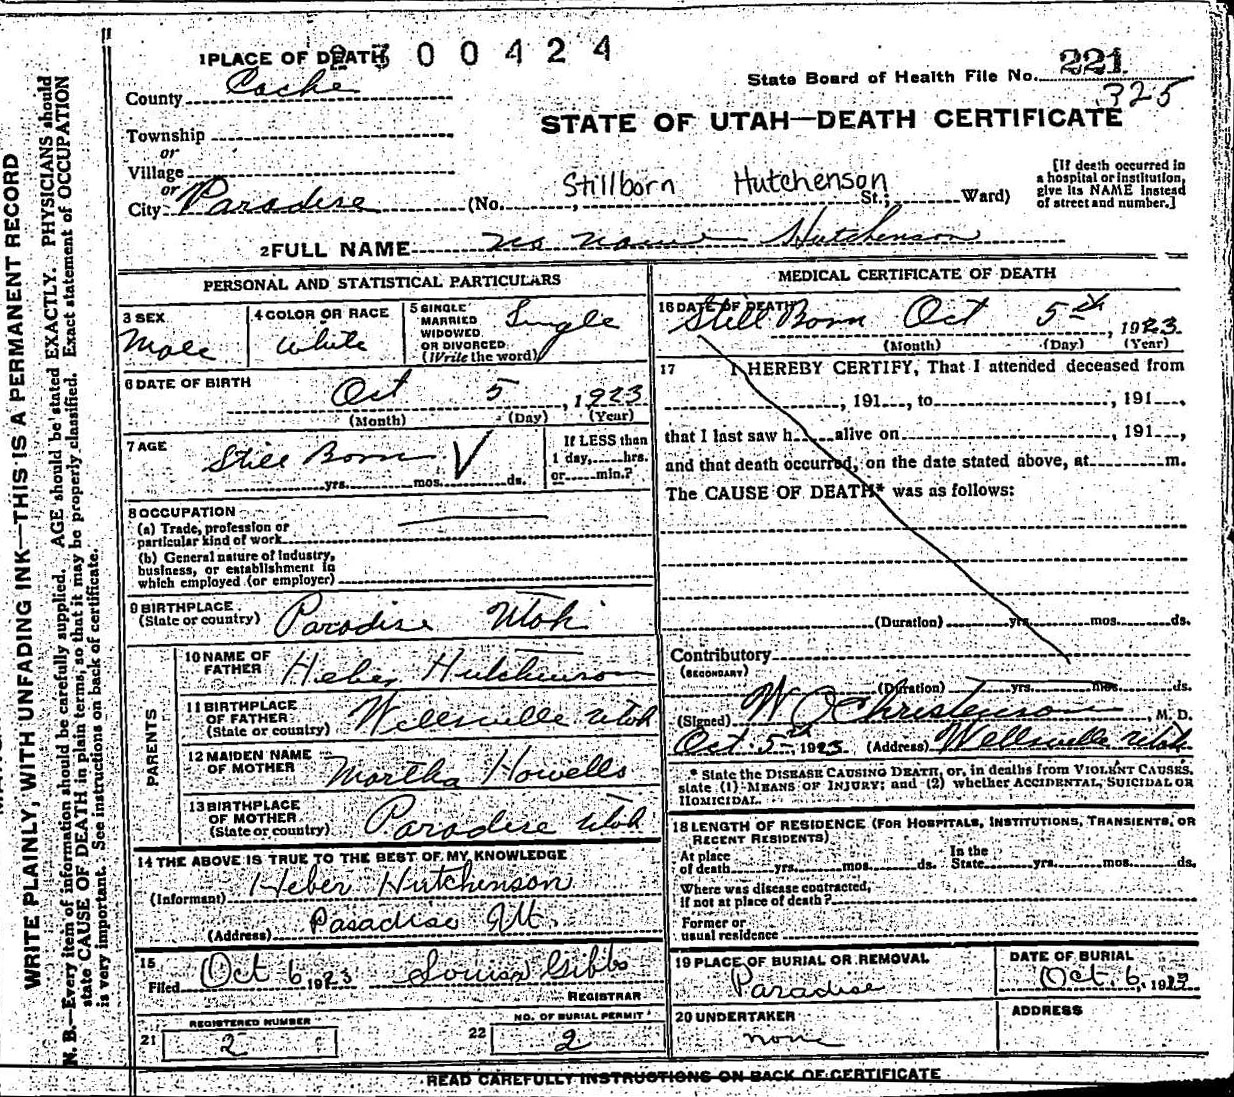 1 PLACE OF DEATH
2 3 0 0 4 2 4
County Cache
Township
or
Village
or
City Paradise (No. , St.; Ward)
Stillborn Hutchenson
State Board of Health File No. 221
325
STATE OF UTAH—DEATH CERTIFICATE
[If death occurred in
a hospital or institution,
give its NAME instead
of street and number.]
2 FULL NAME no name Hutchenson
PERSONAL AND STATISTICAL PARTICULARS
3 SEX
Male
4 COLOR OR RACE
White
5 SINGLE
MARRIED
WIDOWED
OR DIVORCED
(Write the word)
Single
6 DATE OF BIRTH
Oct 5, 1923
(Month) (Day) (Year)
7 AGE
Still Born
yrs. mos. ds.
If LESS than
1 day, hrs.
or min.?
8 OCCUPATION
(a) Trade, profession or
particular kind of work
(b) General nature of Industry,
business, or establishment in
which employed (or employer)
9 BIRTHPLACE
(State or country) Paradise Utah
PARENTS
10 NAME OF
FATHER Heber Hutchinson
11 BIRTHPLACE
OF FATHER
(State or country) Wellsville Utah
12 MAIDEN NAME
OF MOTHER Martha Howells
13 BIRTHPLACE
OF MOTHER
(State or country) Paradise Utah
14 THE ABOVE IS TRUE TO THE BEST OF MY KNOWLEDGE
(Informant) Heber Hutchenson
(Address) Paradise Ut.
15
Filed Oct 6 1923 Louisa Gibbs
REGISTRAR
21 REGISTERED NUMBER
2
22 NO. OF BURIAL PERMIT
2
MEDICAL CERTIFICATE OF DEATH
16 DATE OF DEATH
Still Born Oct 5th, 1923
(Month) (Day) (Year)
17 I HEREBY CERTIFY, That I attended deceased from
, 191 , to , 191 ,
that I last saw h alive on , 191 ,
and that death occurred, on the date stated above, at m.
The CAUSE OF DEATH* was as follows:
(Duration) yrs. mos. ds.
Contributory
(SECONDARY)
(Duration) yrs. mos. ds.
(Signed) W O Christenson, M. D.
Oct. 5th 1923 (Address) Wellsville Utah
* State the DISEASE CAUSING DEATH, or, in deaths from VIOLENT CAUSES,
state (1) MEANS OF INJURY; and (2) whether ACCIDENTAL, SUICIDAL OR
HOMICIDAL.
18 LENGTH OF RESIDENCE (FOR HOSPITALS, INSTITUTIONS, TRANSIENTS, OR
RECENT RESIDENTS)
At place
of death yrs. mos. ds. In the
State yrs. mos. ds.
Where was disease contracted,
if not at place of death?
Former or
usual residence
19 PLACE OF BURIAL OR REMOVAL
Paradise
DATE OF BURIAL
Oct. 6, 1923
20 UNDERTAKER
none
ADDRESS
READ CAREFULLY INSTRUCTIONS ON BACK OF CERTIFICATE
WRITE PLAINLY, WITH UNFADING INK—THIS IS A PERMANENT RECORD
N. B.—Every item of information should be carefully supplied. AGE should be stated EXACTLY. PHYSICIANS should
state CAUSE OF DEATH in plain terms, so that it may be properly classified. Exact statement of OCCUPATION
is very important. See instructions on back of certificate.